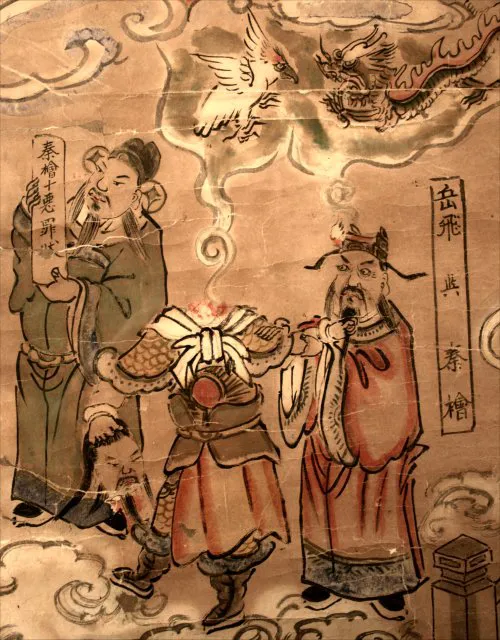 岳飛與秦檜
秦檜十悪罪状